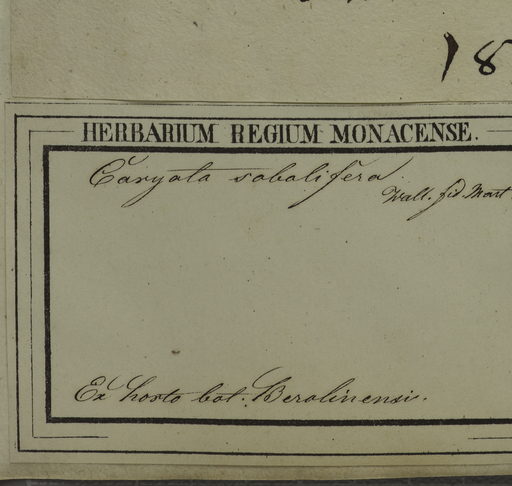 18
HERBARIUM REGIUM MONACENSE.
Caryota sobolifera
Wall. fid. Mart
Ex horto bot. Berolinensi.